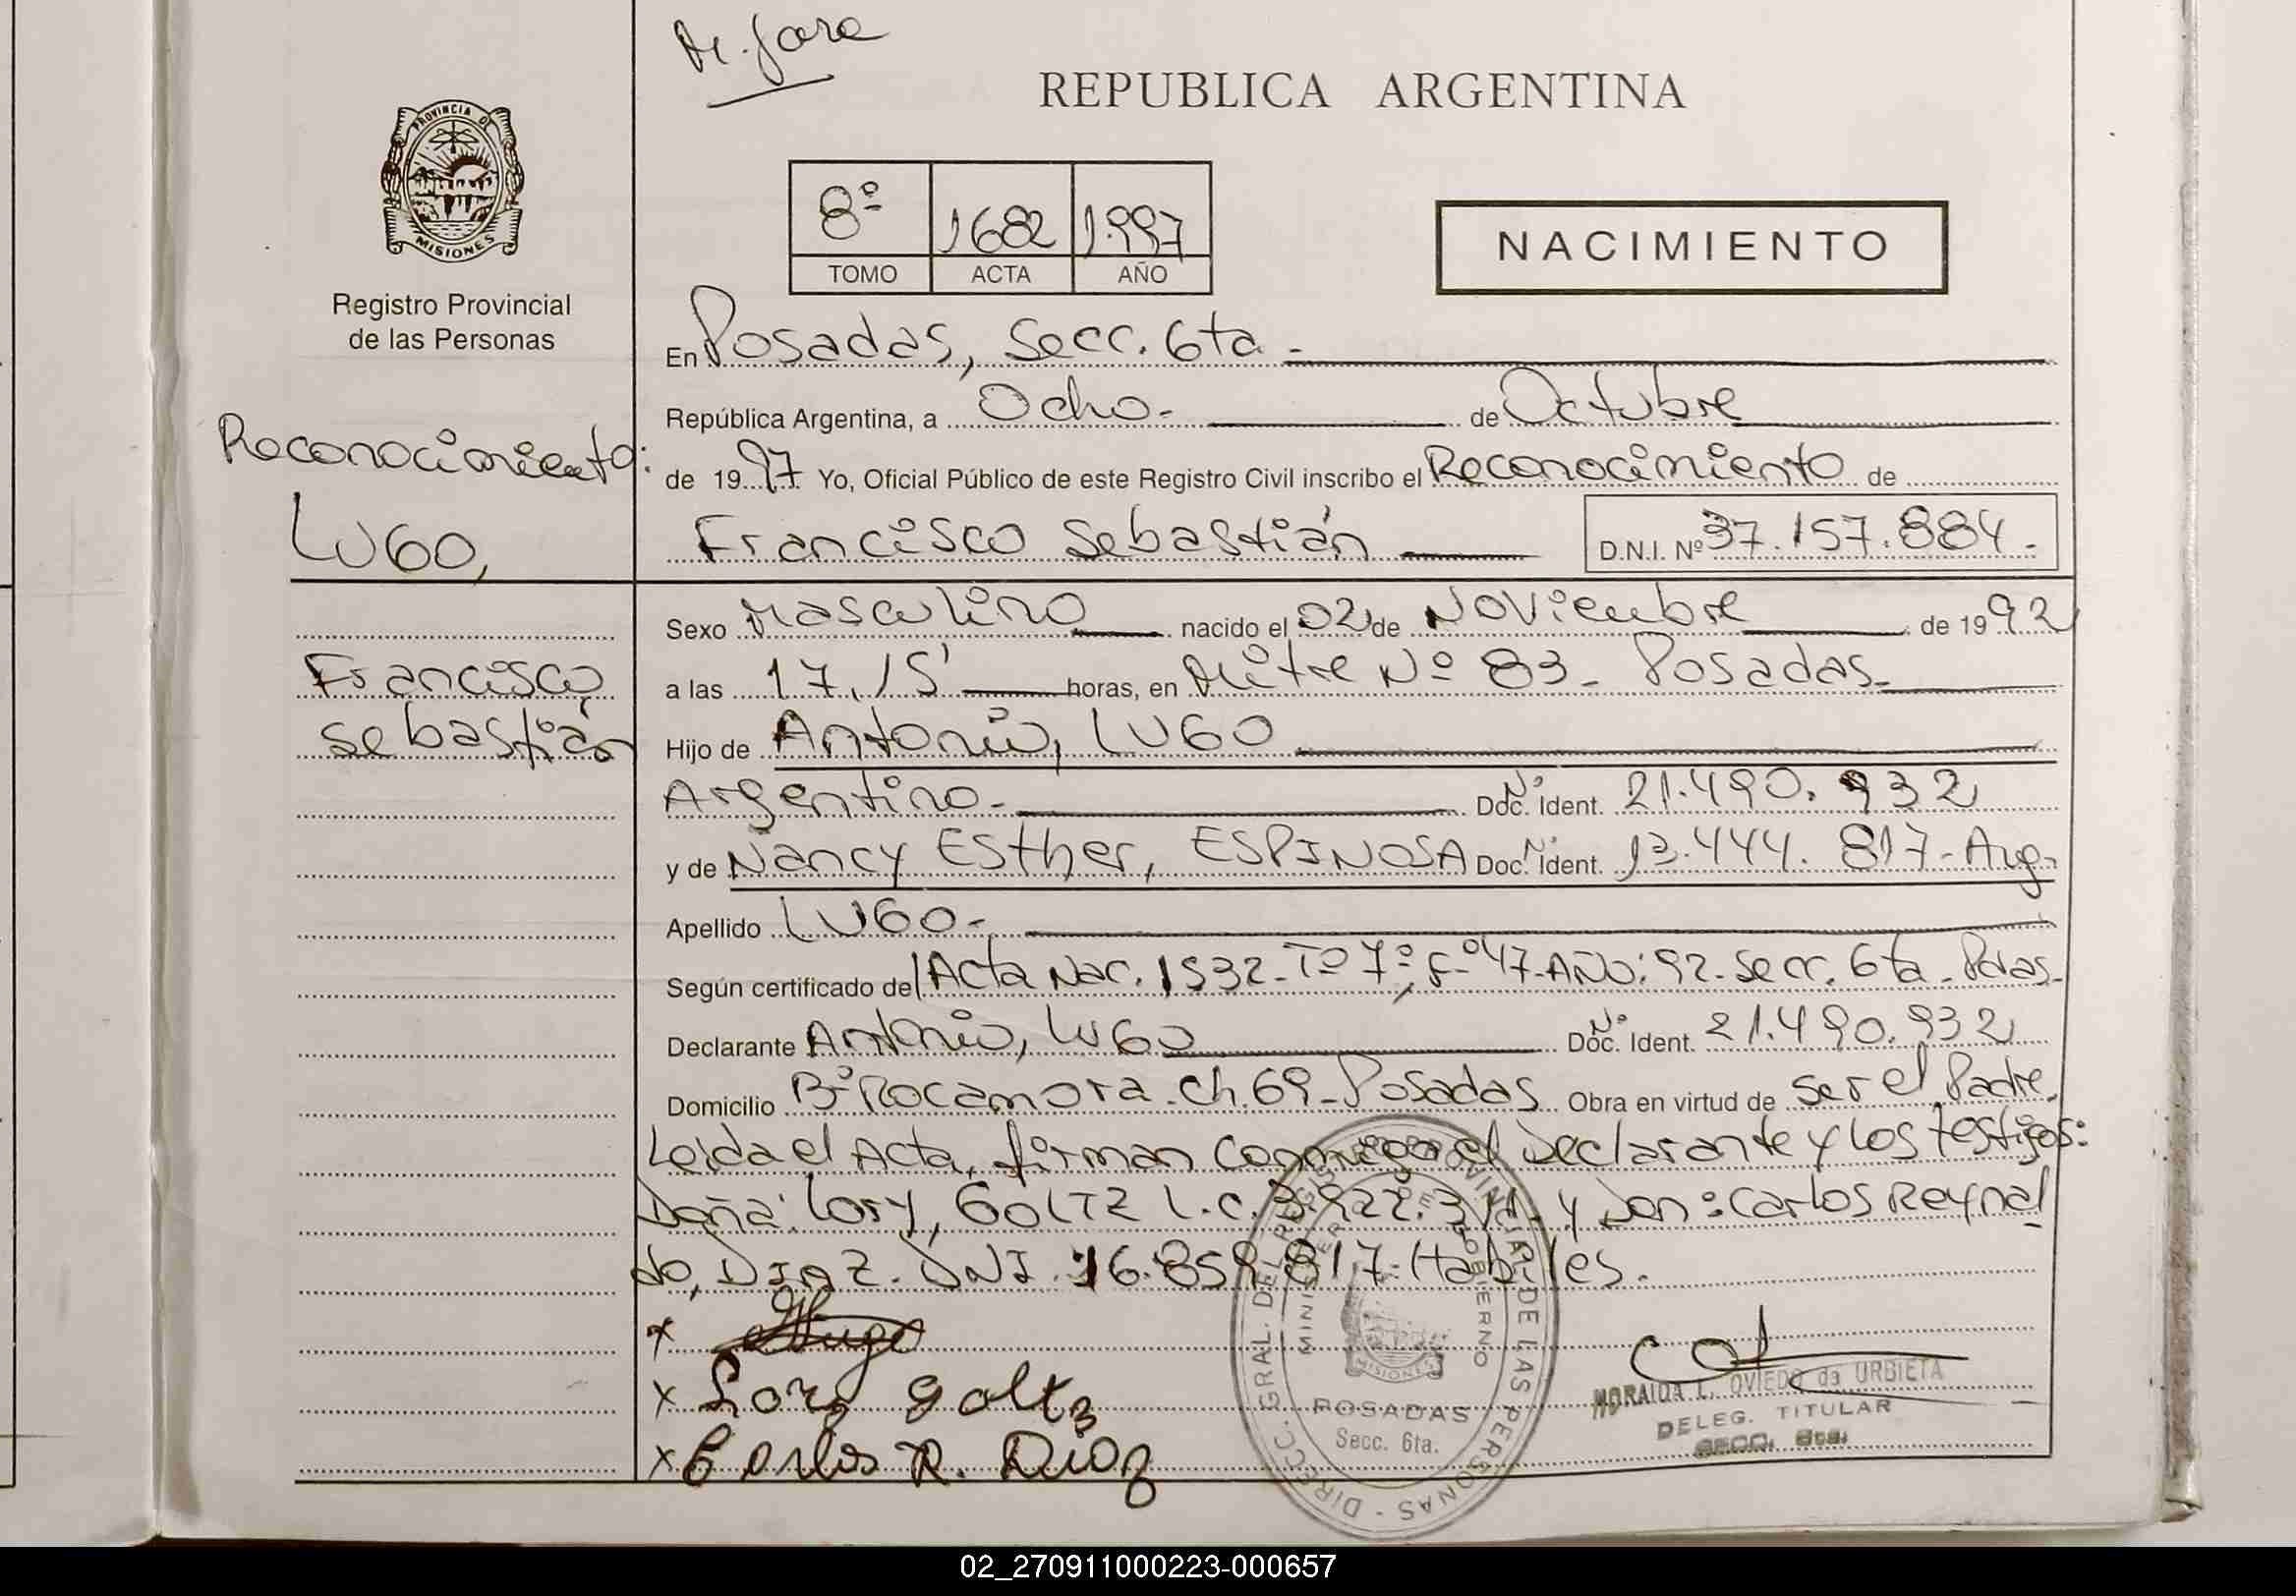 M. Jara
REPUBLICA ARGENTINA
PROVINCIA DE
MISIONES
8º 1682 1997
TOMO ACTA AÑO
NACIMIENTO
Registro Provincial
de las Personas
En Posadas, Secc. 6ta -
República Argentina, a Ocho- de Octubre
Reconocimiento:
de 1997 Yo, Oficial Público de este Registro Civil inscribo el Reconocimiento de
LUGO,
Francisco Sebastián D.N.I. Nº 37.157.884-
Sexo Masculino nacido el 02 de Noviembre de 1992
Francisco
a las 17,15' horas, en Mitre Nº 83- Posadas-
Sebastián
Hijo de Antonio, LUGO
Argentino- Nº Doc. Ident. 21.490.932
y de Nancy Esther, ESPINOSA Nº Doc. Ident. 13.444.817- Arg.
Apellido LUGO-
Según certificado de Acta Nac. 1532- Tº 7º, Fº 47- AÑO: 92- Secc. 6ta- Pdas-
Declarante Antonio, LUGO Nº Doc. Ident. 21.490.932
Domicilio Bº Rocamora- Ch. 69- Posadas Obra en virtud de ser el Padre.
Leida el Acta, firman conmigo el Declarante y los testigos:
Doña: Lory, GOLTZ L.C. 3.922.311- y Don: Carlos Reynal
do, DIAZ- DNI. 16.859.817- Hábiles.
x
x Lory Goltz
x Carlos R. Diaz
DIRECC. GRAL. DEL REGISTRO PROVINCIAL DE LAS PERSONAS -
MINISTERIO DE GOBIERNO
MISIONES
POSADAS
Secc. 6ta.
NORAIDA L. OVIEDO de URBIETA
DELEG. TITULAR
SECC. 6ta.
02_270911000223-000657